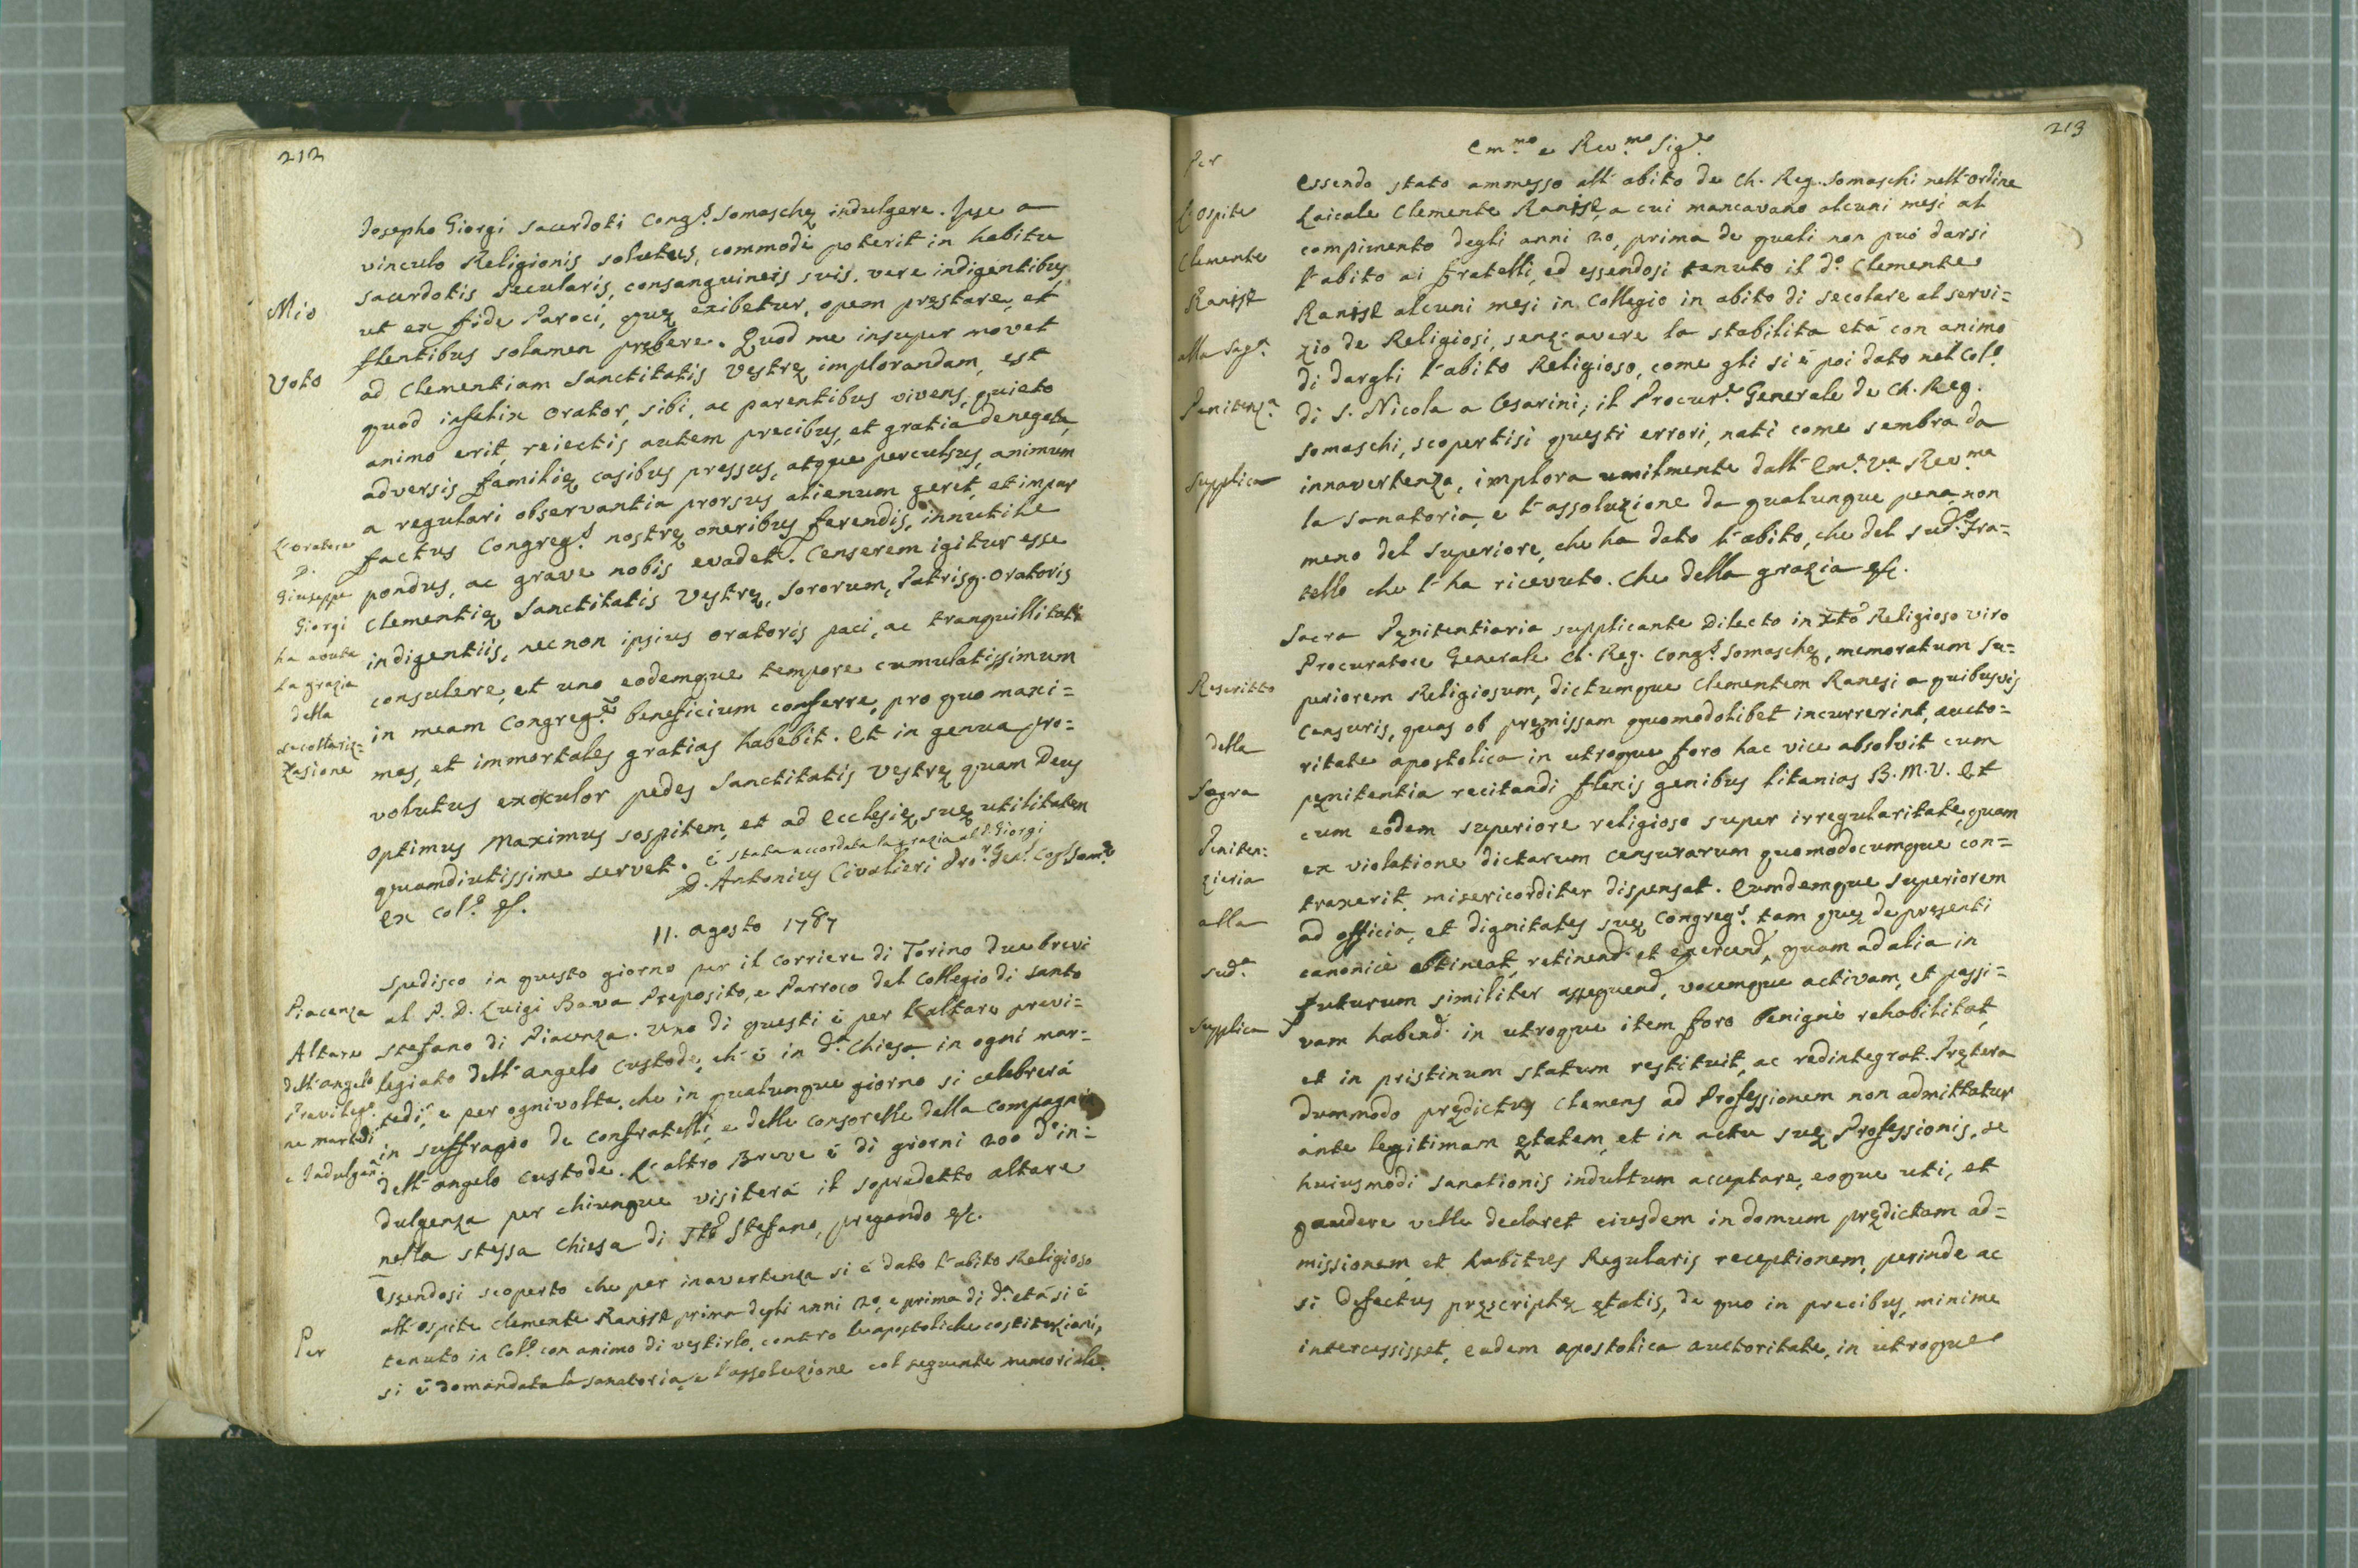 212
Josepho Giorgi Sacerdoti Cong.s Somaschę indulgere. Ipse a
vinculo Religionis solutus, commodè poterit in habitu
Sacerdotis Secularis, consanguineis suis, vere indigentibus,
ut ex fide Paroci, quę exibetur, opem pręstare, et
flentibus solamen prębere. Quod me insuper movet
ad Clementiam Sanctitatis Vestrę implorandam, est
quod infelix Orator, sibi, ac parentibus vivens, quieto
animo erit, reiectis autem precibus, et gratia denegata,
adversis familię casibus pressus, atque perculsus, animum
a regulari observantia prorsus alienum geret, et impar
factus Congreg.s nostrę oneribus ferendis, innutile
pondus, ac grave nobis evadet. Censerem igitur esse
Clementię Sanctitatis Vestrę, Sororum, Patrisq. Oratoris
indigentiis, necnon ipsius Oratoris paci, ac tranquillitati
consulere, et uno eodemque tempore cumulatissimum
in meam Congreg.e beneficium conferre, pro quo maxi=
mas, et immortales gratias habebit. Et in genua pro=
volutus exosculor pedes Sanctitatis Vestrę quam Deus
Optimus Maximus sospitem, et ad Ecclesię suę utilitatem
quamdiutissime servet. è stata accordata la grazia al P. Giorgi
D. Antonius Civalieri Pro.r Gen.l Cog. Som.e
ex Col.o &.
Mio
Voto
L'oratore
P.
Giuseppe
Giorgi
ha avuta
la grazia
della
secolariz=
zazione
11. Agosto 1787
Spedisco in questo giorno per il corriere di Torino due brevi
al P. D. Luigi Bava Preposito, e Parroco del Collegio di Santo
Stefano di Piacenza. Uno di questi è per l'altare previ=
legiato dell'angelo Custode, ch'è in d.a Chiesa in ogni mar=
tedì, e per ognivolta, che in qualunque giorno si celebrerà
in suffragio de Confratelli, e delle consorelle della Compagnia
dell'angelo Custode. L'altro Breve è di giorni 200 d'in=
dulgenza per chiunque visiterà il sopradetto altare
nella stessa Chiesa di S.to Stefano, pregando &c.
Piacenza
Altare
dell'angelo
Previleg.o
ne martedì
e Indulgen.
Essendosi scoperto che per inavertenza si è dato l'abito Religioso
all'ospite Clemente prima degli anni 20, e prima di d.a età si è
tenuto in Col.o con animo di vestirlo, contro le apostoliche costituzioni,
si è domandata la sanatoria, e l'assoluzione col seguente memoriale.
Per
213
Em.mo e Rev.mo Sig.e
Essendo stato ammesso all'abito de Ch. Reg. Somaschi nell'Ordine
Laicale Clemente a cui mancavano alcuni mesi al
compimento degli anni 20, prima de quali non può darsi
l'abito ai fratelli, ed essendosi tenuto il d.o Clemente
alcuni mesi in Collegio in abito di secolare al servi=
zio de Religiosi, senz'avere la stabilita età con animo
di dargli l'abito Religioso, come gli si è poi dato nel Col.o
di S. Nicola a Cesarini; il Procur.e Generale de Ch. Reg.
Somaschi, scopertisi questi errori, nati come sembra da
innavertenza, implora umilmente dall'Em.a V.a Rev.ma
la sanatoria, e l'assoluzione da qualunque pena, non
meno del Superiore, che ha dato l'abito, che del sud.o Fra=
tello che l'ha ricevuto. Che della grazia &c.
Per
L'Ospite
Clemente
alla Sag.a
Penitenz.a
Supplica
Sacra Pęnitentiaria supplicante Dilecto in Xto Religioso viro
Procuratore Generale Cl. Reg. Cong.s Somaschę, memoratum Su=
periorem Religiosum, dictumque Clementem Ranesi a quibusvis
Censuris, quas ob pręmissam quomodolibet incurrerint, aucto=
ritate apostolica in utroque foro hac vice absolvit cum
pęnitentia recitandi flexis genibus litanias B. M. V. Et
cum eodem superiore religioso super irregularitate, quam
ex violatione dictarum Censurarum quomodocumque con=
traxerit, misericorditer dispensat. Eumdemque Superiorem
ad officia, et dignitates suę Congreg.s, tam quę de presenti
canonicè obtineat, retinend. et exercend., quam ad alia in
futurum similiter assequend., vocemque activam, et passi=
vam habend. in utroque item foro benignè rehabilitat,
et in pristinum statum restituit, ac redintegrat. Pręterea
dummodo prędictus Clemens ad Professionem non admittatur
ante legitimam ętatem, et in actu suę Professionis, se
huiusmodi sanationis indultum acceptare, eoque uti, et
gaudere velle declaret eiusdem in domum prędictam ad=
missionem, et habitus Regularis receptionem, perinde ac
si defectus pręscriptę ętatis, de quo in precibus, minime
intercessisset, eadem apostolica auctoritate, in utroque
Rescritto
della
Sagra
Peniten:
zieria
alla
sud.a
Supplica